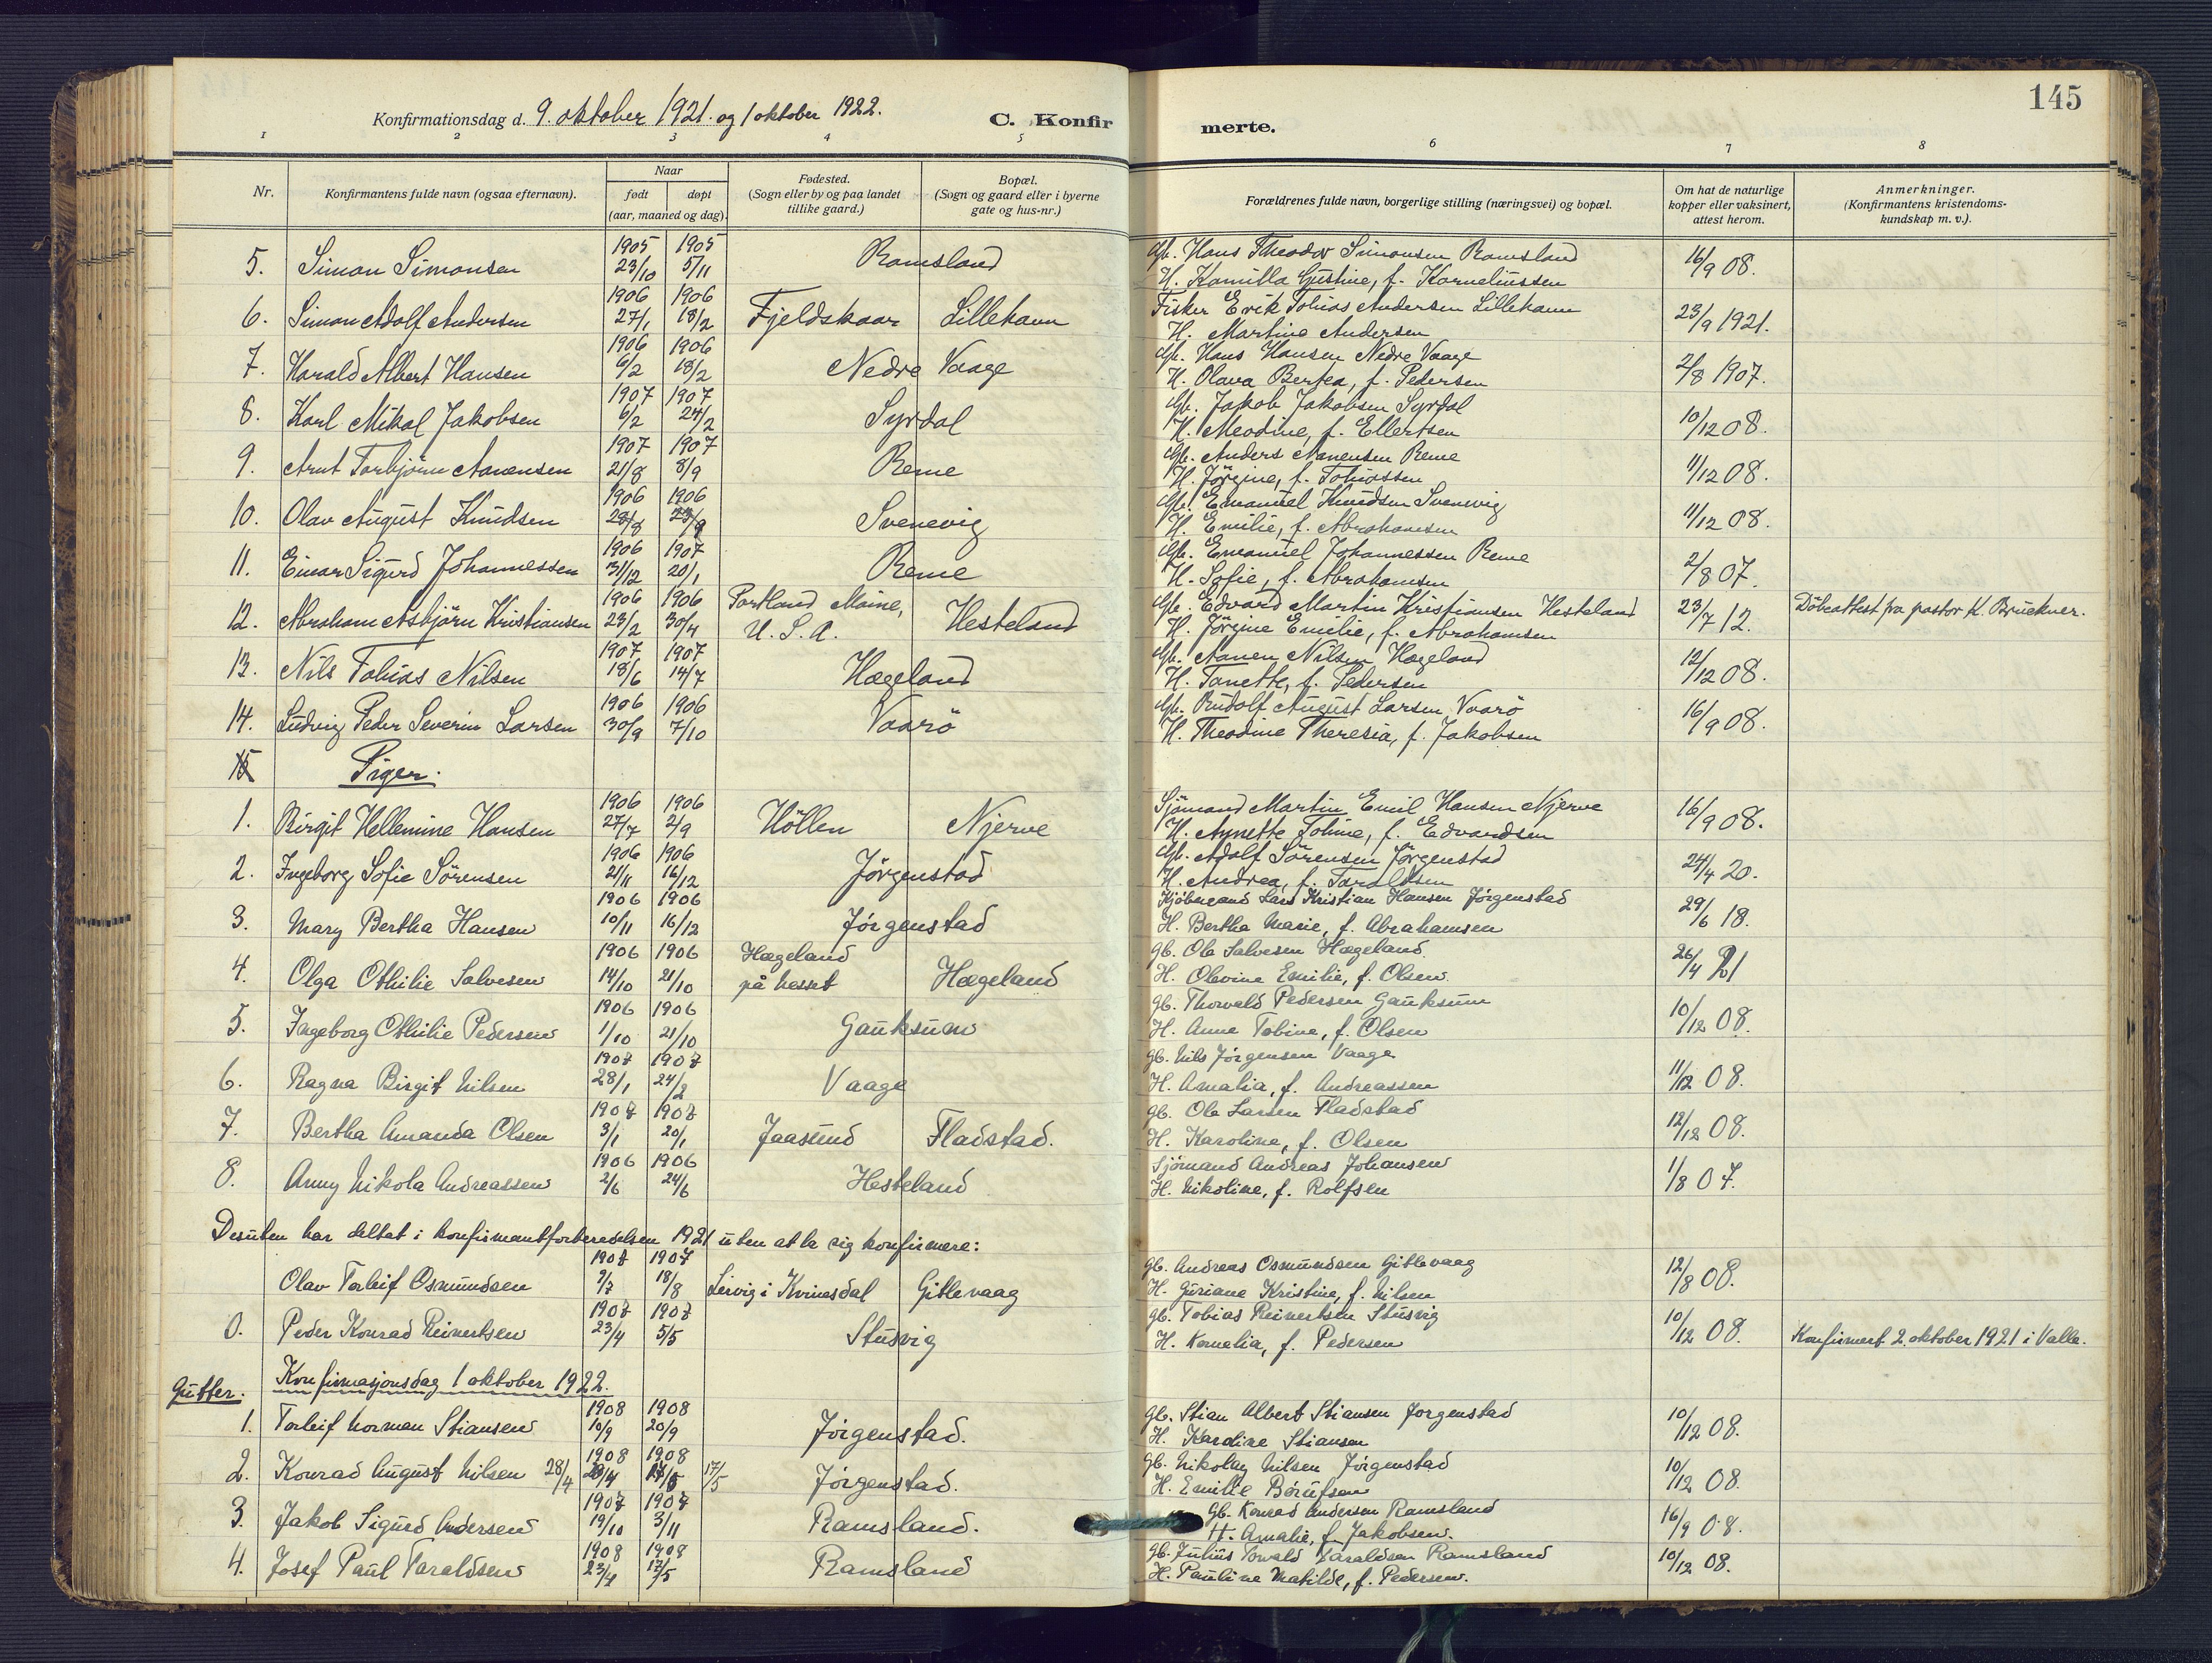 145
Konfirmationsdag d. 9. oktober 1921. og 1 oktober 1922. C. Konfirmerte.
1 2 3 4 5 6 7 8
Nr. Konfirmantens fulde navn (ogsaa efternavn). Naar født døpt (aar, maaned og dag). Fødested. (Sogn eller by og paa landet tillike gaard.) Bopæl. (Sogn og gaard eller i byerne gate og hus-nr.) Forældrenes fulde navn, borgerlige stilling (næringsvei) og bopæl. Om hat de naturlige kopper eller vaksinert, attest herom. Anmerkninger. (Konfirmantens kristendomskundskap m. v.).
1905 1905 Gb. Hans Theodor Simonsen Ramsland
5. Simon Simonsen 23/10 5/11 Ramsland H. Kamilla Gustine, f. Korneliussen 16/9 08.
1906 1906 Fisker Erik Tobias Andersen Lillehavn
6. Simon Adolf Andersen 27/1 18/2 Fjeldskaar Lillehavn H. Martine Andersen 23/9 1921.
1906 1906 Gb. Hans Hansen Nedre Vaage
7. Harald Albert Hansen 6/2 18/2 Nedre Vaage H. Olava Bertea, f. Pedersen 2/8 1907.
1907 1907 Gb. Jakob Jakobsen Syrdal
8. Karl Mikal Jakobsen 6/2 24/2 Syrdal H. Meodine, f. Ellertsen 10/12 08.
1907 1907 Gb. Anders Aanensen Reme
9. Arnt Torbjörn Aanensen 21/8 8/9 Reme H. Jörgine, f. Tobiassen 11/12 08.
1906 1906 Gb. Emanuel Knudsen Svenevig
10. Olav August Knudsen Svenevig H. Emilie, f. Abrahamsen 11/12 08.
1906 1907 Gb. Emanuel Johannessen Reme
11. Einar Sigurd Johannessen 31/12 20/1 Reme H. Sofie, f. Abrahamsen 2/8 07.
1906 1906 Portland Maine, Gb. Edvard Martin Kristiansen Hesteland
12. Abraham Asbjörn Kristiansen 23/2 30/4 U. S. A. Hesteland H. Jörgine Emilie, f. Abrahamsen 23/7 12. Döbeattest fra pastor K. Bruckner.
1907 1907 Gb. Aanen Nilsen Hægeland
13. Nils Tobias Nilsen 18/6 14/7 Hægeland H. Tanette, f. Pedersen 12/12 08.
1906 1906 Gb. Rudolf August Larsen Vaarö
14. Ludvig Peder Severin Larsen 30/9 7/10 Vaarö H. Theodine Theresia, f. Jakobsen 16/9 08.
15 Piger.
1906 1906 Sjömand Martin Emil Hansen Njerve
1. Birgit Hellemine Hansen 27/7 2/9 Höllen Njerve H. Aynette Toline, f. Edvardsen 16/9 08.
1906 1906 Gb. Adolf Sörensen Jörgenstad
2. Ingeborg Sofie Sörensen 21/11 16/12 Jörgenstad H. Andrea, f. Taraldsen 24/4 20.
1906 1906 Kjöbmand Lars Kristian Hansen Jörgenstad
3. Mary Bertha Hansen 10/11 16/12 Jörgenstad H. Bertha Marie, f. Abrahamsen 29/6 18.
1906 1906 Hægeland Gb. Ole Salvesen Hægeland
4. Olga Othilie Salvesen 14/10 21/10 på hesset Hægeland H. Olevine Emilie, f. Olsen 26/4 21
1906 1906 Gb. Thorvald Pedersen Gauksum
5. Ingeborg Othilie Pedersen 1/10 21/10 Gauksum H. Anne Tobine, f. Olsen 10/12 08.
1907 1907 Gb. Nils Jörgensen Vaage
6. Ragna Birgit Nilsen 28/1 24/2 Vaage H. Amalia, f. Andreassen 11/12 08.
1907 1907 Gb. Ole Larsen Fladstad
7. Bertha Amanda Olsen 3/1 20/1 Jaasund Fladstad. H. Karoline, f. Olsen 12/12 08.
1906 1906 Sjömand Andreas Johansen
8. Anny Nikola Andreassen 2/6 24/6 Hesteland H. Nikoline, f. Rolfsen 1/8 07.
Desuten har deltat i konfirmantforberedelsen 1921 uten at la sig konfirmere:
1907 1907 Gb. Andreas Osmundsen Gitlevaag
Olav Torleif Osmundsen 9/7 18/8 Lervig i Kvinesdal Gitlevaag H. Guriane Kristine, f. Nilsen 12/8 08.
1907 1907 Gb. Tobias Reinertsen Stusvig
0. Peder Konrad Reinertsen 23/4 5/5 Stusvig H. Kornelia, f. Pedersen 10/12 08. Konfirmert 2. oktober 1921 i Valle.
Gutter. Konfirmasjonsdag 1 oktober 1922.
1908 1908 Gb. Stian Albert Stiansen Jørgenstad
1. Torleif Norman Stiansen 10/9 20/9 Jörgenstad. H. Karoline Stiansen 10/12 08.
1908 1908 Gb. Nikolay Nilsen Jörgenstad
2. Konrad August Nilsen 28/4 17/5 Jörgenstad. H. Emilie Börufsen 10/12 08.
1907 1907 Gb. Konrad Andersen Ramsland
3. Jakob Sigurd Andersen 19/10 3/11 Ramsland. H. Amalie, f. Jakobsen. 16/9 08.
1908 1908 Gb. Julius Torvald Taraldsen Ramsland
4. Josef Paul Taraldsen 23/4 17/5 Ramsland H. Pauline Matilde, f. Pedersen. 10/12 08.